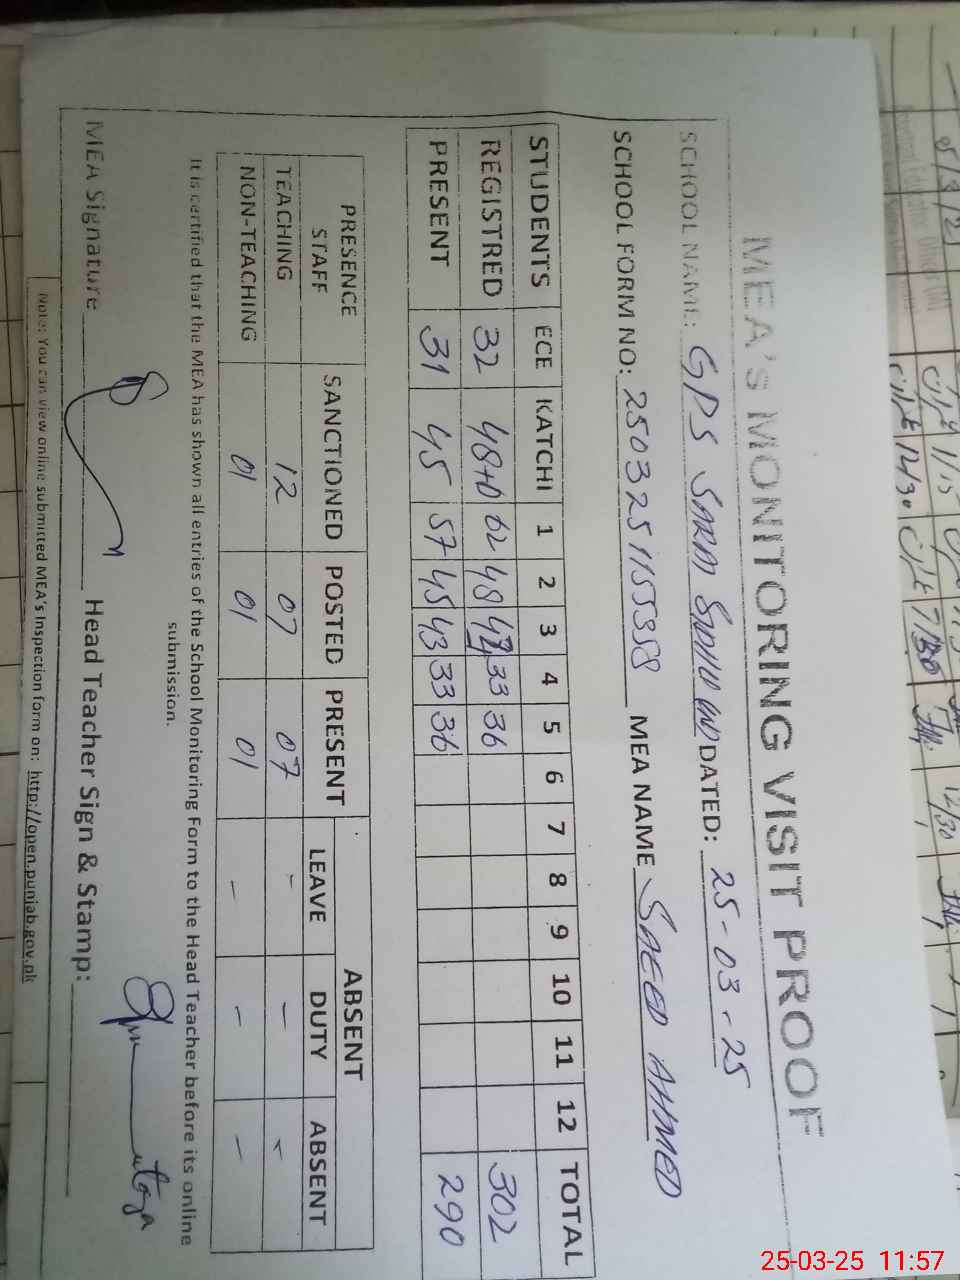 MEA's MONITORING VISIT PROOF
SCHOOL NAME: GPS DATED: 25-03-25
SCHOOL FORM NO: 2503251155358 MEA NAME SAEED AHMED
STUDENTS ECE KATCHI 1 2 3 4 5 6 7 8 9 10 11 12 TOTAL
REGISTRED 32 48+0 62 48 43 33 36 302
PRESENT 31 45 57 45 43 33 36 290
PRESENCE STAFF SANCTIONED POSTED PRESENT ABSENT
LEAVE DUTY ABSENT
TEACHING 12 07 07 - - -
NON-TEACHING 01 01 01 - - -
It is certified that the MEA has shown all entries of the School Monitoring Form to the Head Teacher before its online
submission.
MEA Signature Head Teacher Sign & Stamp:
Note: You can view online submitted MEA's Inspection form on: http://open.punjab.gov.pk
25-03-25 11:57